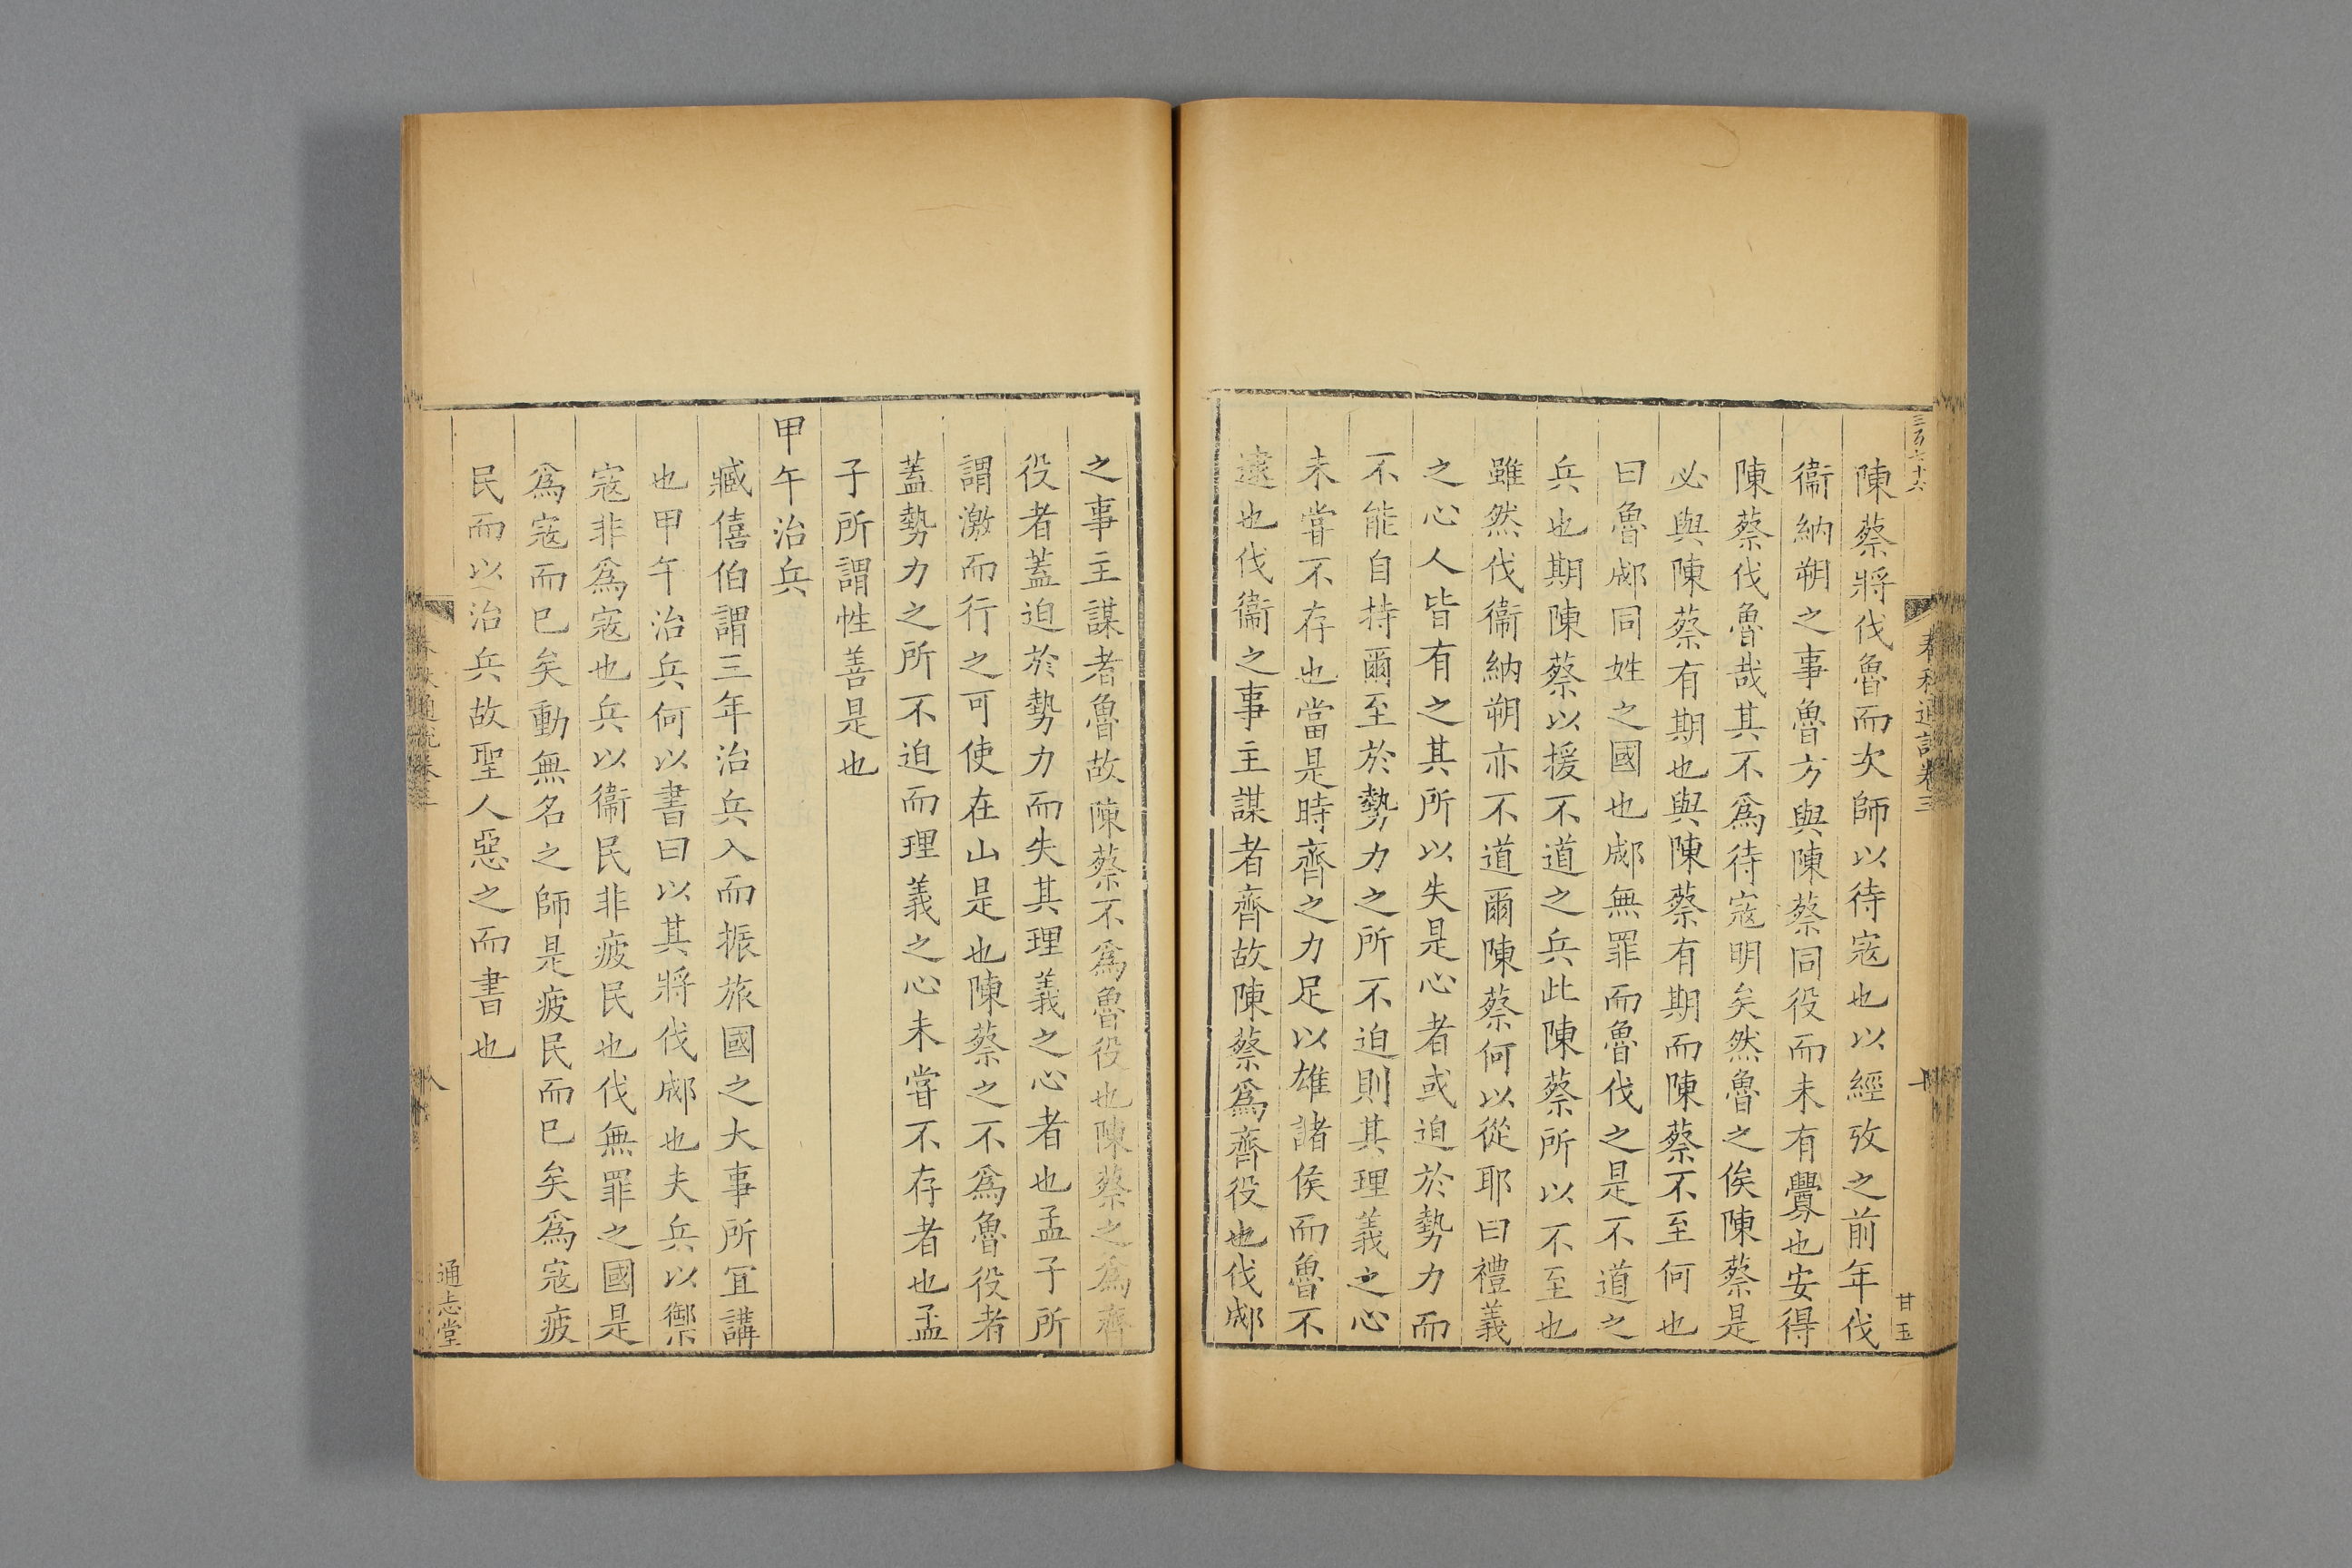 陳蔡將伐魯而次師以待寇也以經攷之前年伐
衞納朔之事魯方與陳蔡同役而未有釁也安得
陳蔡伐魯哉其不爲待寇明矣然魯之俟陳蔡是
必與陳蔡有期也與陳蔡有期而陳蔡不至何也
曰魯郕同姓之國也郕無罪而魯伐之是不道之
兵也期陳蔡以援不道之兵此陳蔡所以不至也
雖然伐衞納朔亦不道爾陳蔡何以從耶曰禮義
之心人皆有之其所以失是心者或迫於勢力而
不能自持爾至於勢力之所不迫則其理義之心
未嘗不存也當是時齊之力足以雄諸侯而魯不
逮也伐衞之事主謀者齊故陳蔡爲齊役也伐郕
春秋通說卷三
甘玉
之事主謀者魯故陳蔡不爲魯役也陳蔡之爲齊
役者蓋迫於勢力而失其理義之心者也孟子所
謂激而行之可使在山是也陳蔡之不爲魯役者
蓋勢力之所不迫而理義之心未嘗不存者也孟
子所謂性善是也
甲午治兵
臧僖伯謂三年治兵入而振旅國之大事所宜講
也甲午治兵何以書曰以其將伐郕也夫兵以禦
寇非爲寇也兵以衞民非疲民也伐無罪之國是
爲寇而已矣動無名之師是疲民而已矣爲寇疲
民而以治兵故聖人惡之而書也
通志堂